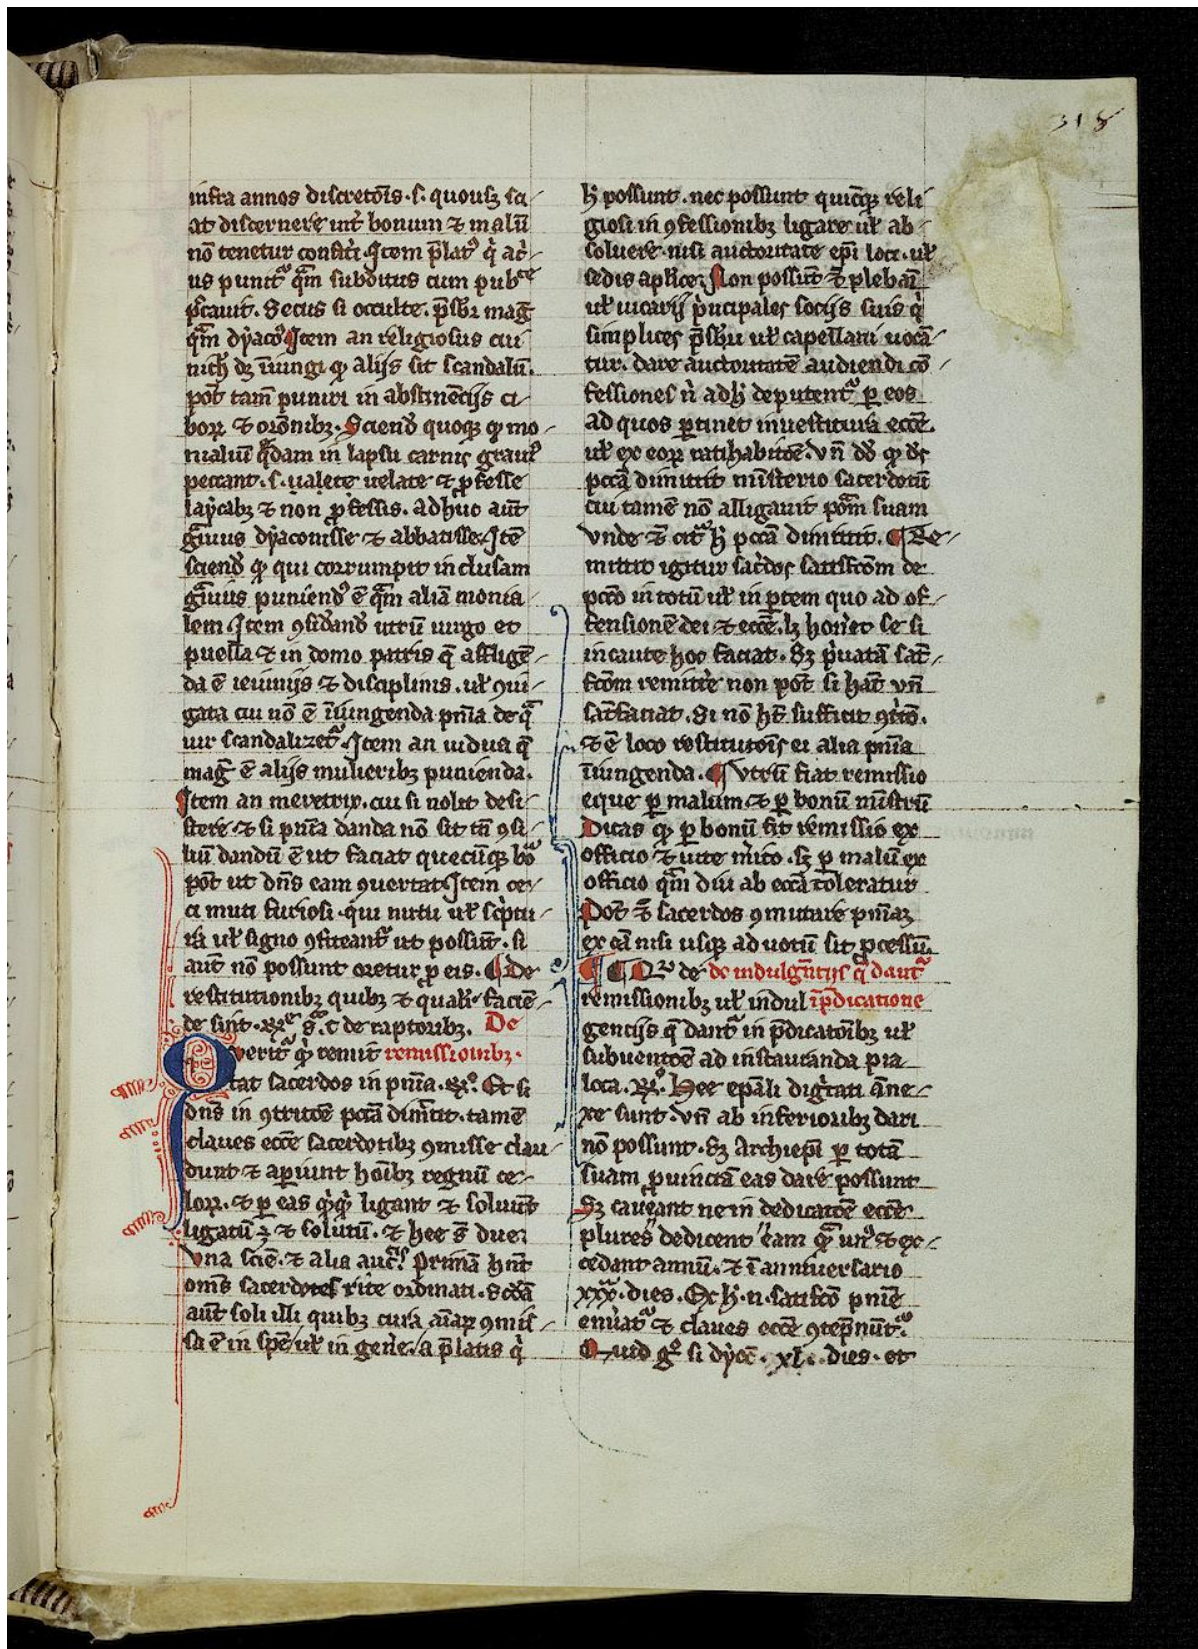 318
infra annos discretōis .s. quousq; sci-
at discernere int̄ bonum ⁊ malū
nō tenetur confit̄i. Item p̄lat⁹ q̇ ac̄i
us punit᷑ q̄m subditus cum pub^ce
pͨcauit. Secus si occulte. p̄sbr̄ maḡ
q̄m dẏaco⁹ Item an religiosus cui
nich̄ dꝫ īiungi qͥ alijs sit scandalū.
pōt tam̄ puniri in abstinēcijs ci-
boꝝ ⁊ orōnibꝫ. Sciend̄ quoqꝫ qͥ mo-
nialiū q̄dam in lapsu carnis graui⁹
peccant .s. ualete uelate ⁊ ꝓfesse
laẏcabꝫ ⁊ non ꝓfessis. adhuc aūt
gͣuius dẏaconisse ⁊ abbatisse. Itē
sciend̄ qͥ qui corrumpit inclusam
gͣuius puniend⁹ ē q̄m aliā monia-
lem Item ꝯsid̄and̄ utrū uirgo et
puella ⁊ in domo patris q̄ affligē-
da ē ieiunijs ⁊ disciplinis. uł ꝯiu-
gata cui nō ē īiungenda pn̄ia de qͣ
uir scandalizet᷑. Item an uidua q̄
maḡ ē alijs mulieribꝫ punienda.
Item an meretrix. cui si nolit desi-
stere ⁊ si pn̄ia danda nō sit tn̄ ꝯsi-
liū dandū ē ut faciat quecūqꝫ boͣ
pōt ut dn̄s eam ꝯuertat Item ce-
ci muti furiosi. qui nutu uł sc̄ptu-
ra uł signo ꝯfiteant᷑ ut possūt. si
aūt nō possunt oretur ꝓ eis. ¶ De
restitutionibꝫ quibꝫ ⁊ quałr faciē-
de sint. Rͤ. s̄. t̄ de raptoribꝫ. De
Querit᷑ qͥ remit remissionibꝫ.
tat sacerdos in pn̄ia. R⁰. Et si
dn̄s in ꝯtricōe pccā dimittit. tamē
claues eccē sacerdotibꝫ ꝯmisse clau-
dunt ⁊ aꝑiunt hoībꝫ regnū ce-
loꝝ. ⁊ ꝑ eas qͥqͥ ligant ⁊ soluūt
ligatū ē ⁊ solutū. ⁊ hee s̄ due.
Vna sciē. ⁊ alia auc̄. Primā hn̄t
om̄s sacerdotes rite ordinati. Scd̄ā
aūt soli illi quibꝫ cura aīaꝝ ꝯmis-
sa ē in spē uł in gen̄e. a p̄latis qͥ
h̄ possunt. nec possunt quicūqꝫ reli
giosi in ꝯfessionibꝫ ligare uł ab-
soluere nisi auctoritate ep̄i loci. uł
sedis aplice. Non possūt ⁊ plebāi
uł uicarij p̄ncipales socijs suis qͥ
simplices p̄sbri uł capellani uocā-
tur. dare auctoritatē audiendi cō-
fessiones n̄ adh̄ deputent᷑ ꝑ eos
ad quos ꝑtinet inuestitura eccē.
uł ex eoꝝ ratihabicōe. Vn̄ dd̄ qͥ dꝰ
pccā dimittit ministerio sacerdotū
cui tamē nō alligauit potām suam
Vnde ⁊ citͣ h̄ pccā dimittit. ¶ Re-
mittit igitur sac̄dos satisfcōm de
pccō in totū uł in ꝑtem quo ad of-
fensionē dei ⁊ eccē. lꝫ hon̄et se si
incaute hoc faciat. Sꝫ p̄uatā sat̄-
fcōm remitt̄e non pōt si hāt vn̄
sat̄faciat. Si nō ht̄ sufficit ꝯt̄cō.
⁊ ē loco restitutōis ei alia pn̄ia
īiungenda. ¶ Vtrū fiat remissio
eque ꝑ malum ⁊ ꝑ bonū mīstrū
Dicas qͥ ꝑ bonū fit remissio ex
officio ⁊ uite m̄ito. sꝫ ꝑ malū ex
officio q̄m diu ab eccā toleratur
Pōt ⁊ sacerdos ꝯmutare pn̄iaꝫ
ex cā nisi usqꝫ ad uotū sit ꝓcessū.
¶ ¶ Qͬ de de indulgn̄tijs q̄ dant᷑
remissionibꝫ uł indul ī p̄dicatione
gencijs q̄ dant᷑ in p̄dicatōibꝫ uł
subuentōe ad instauranda pia
loca. R⁰. Hee ep̄ali diḡtati āne-
xe sunt. Vn̄ ab inferioribꝫ dari
nō possunt. Sꝫ Archiep̄i ꝑ totā
suam ꝓuinciā eas dare possunt
Sꝫ caueant ne in dedicatōe eccē
plures dedicent eam q̄m un⁹ ⁊ ex-
cedant annū. ⁊ ī anniuersario
xxxͣ. dies. Ex h̄ .n. satisfcō pnīe
en̄uat᷑ ⁊ claues eccē ꝯtēpnūt᷑.
Quid gͦ si dẏoc̄. xl. dies. et